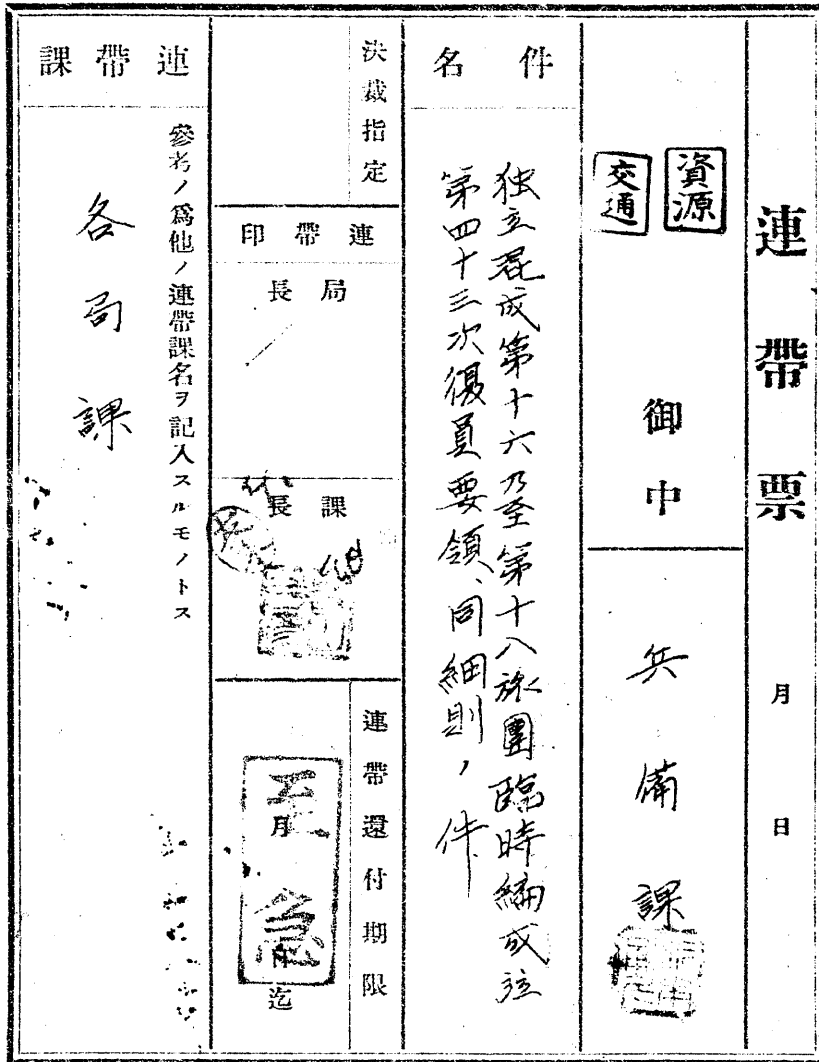 連帶票
月 日
資源
交通
御中
兵備課
件名
独立混成第十六乃至第十八旅團臨時編成竝
第四十三次復員要領、同細則ノ件
決裁指定
連帶印
局長
課長
連帶還付期限
月 迄
至急
連帶課
參考ノ爲他ノ連帶課名ヲ記入スルモノトス
各局課